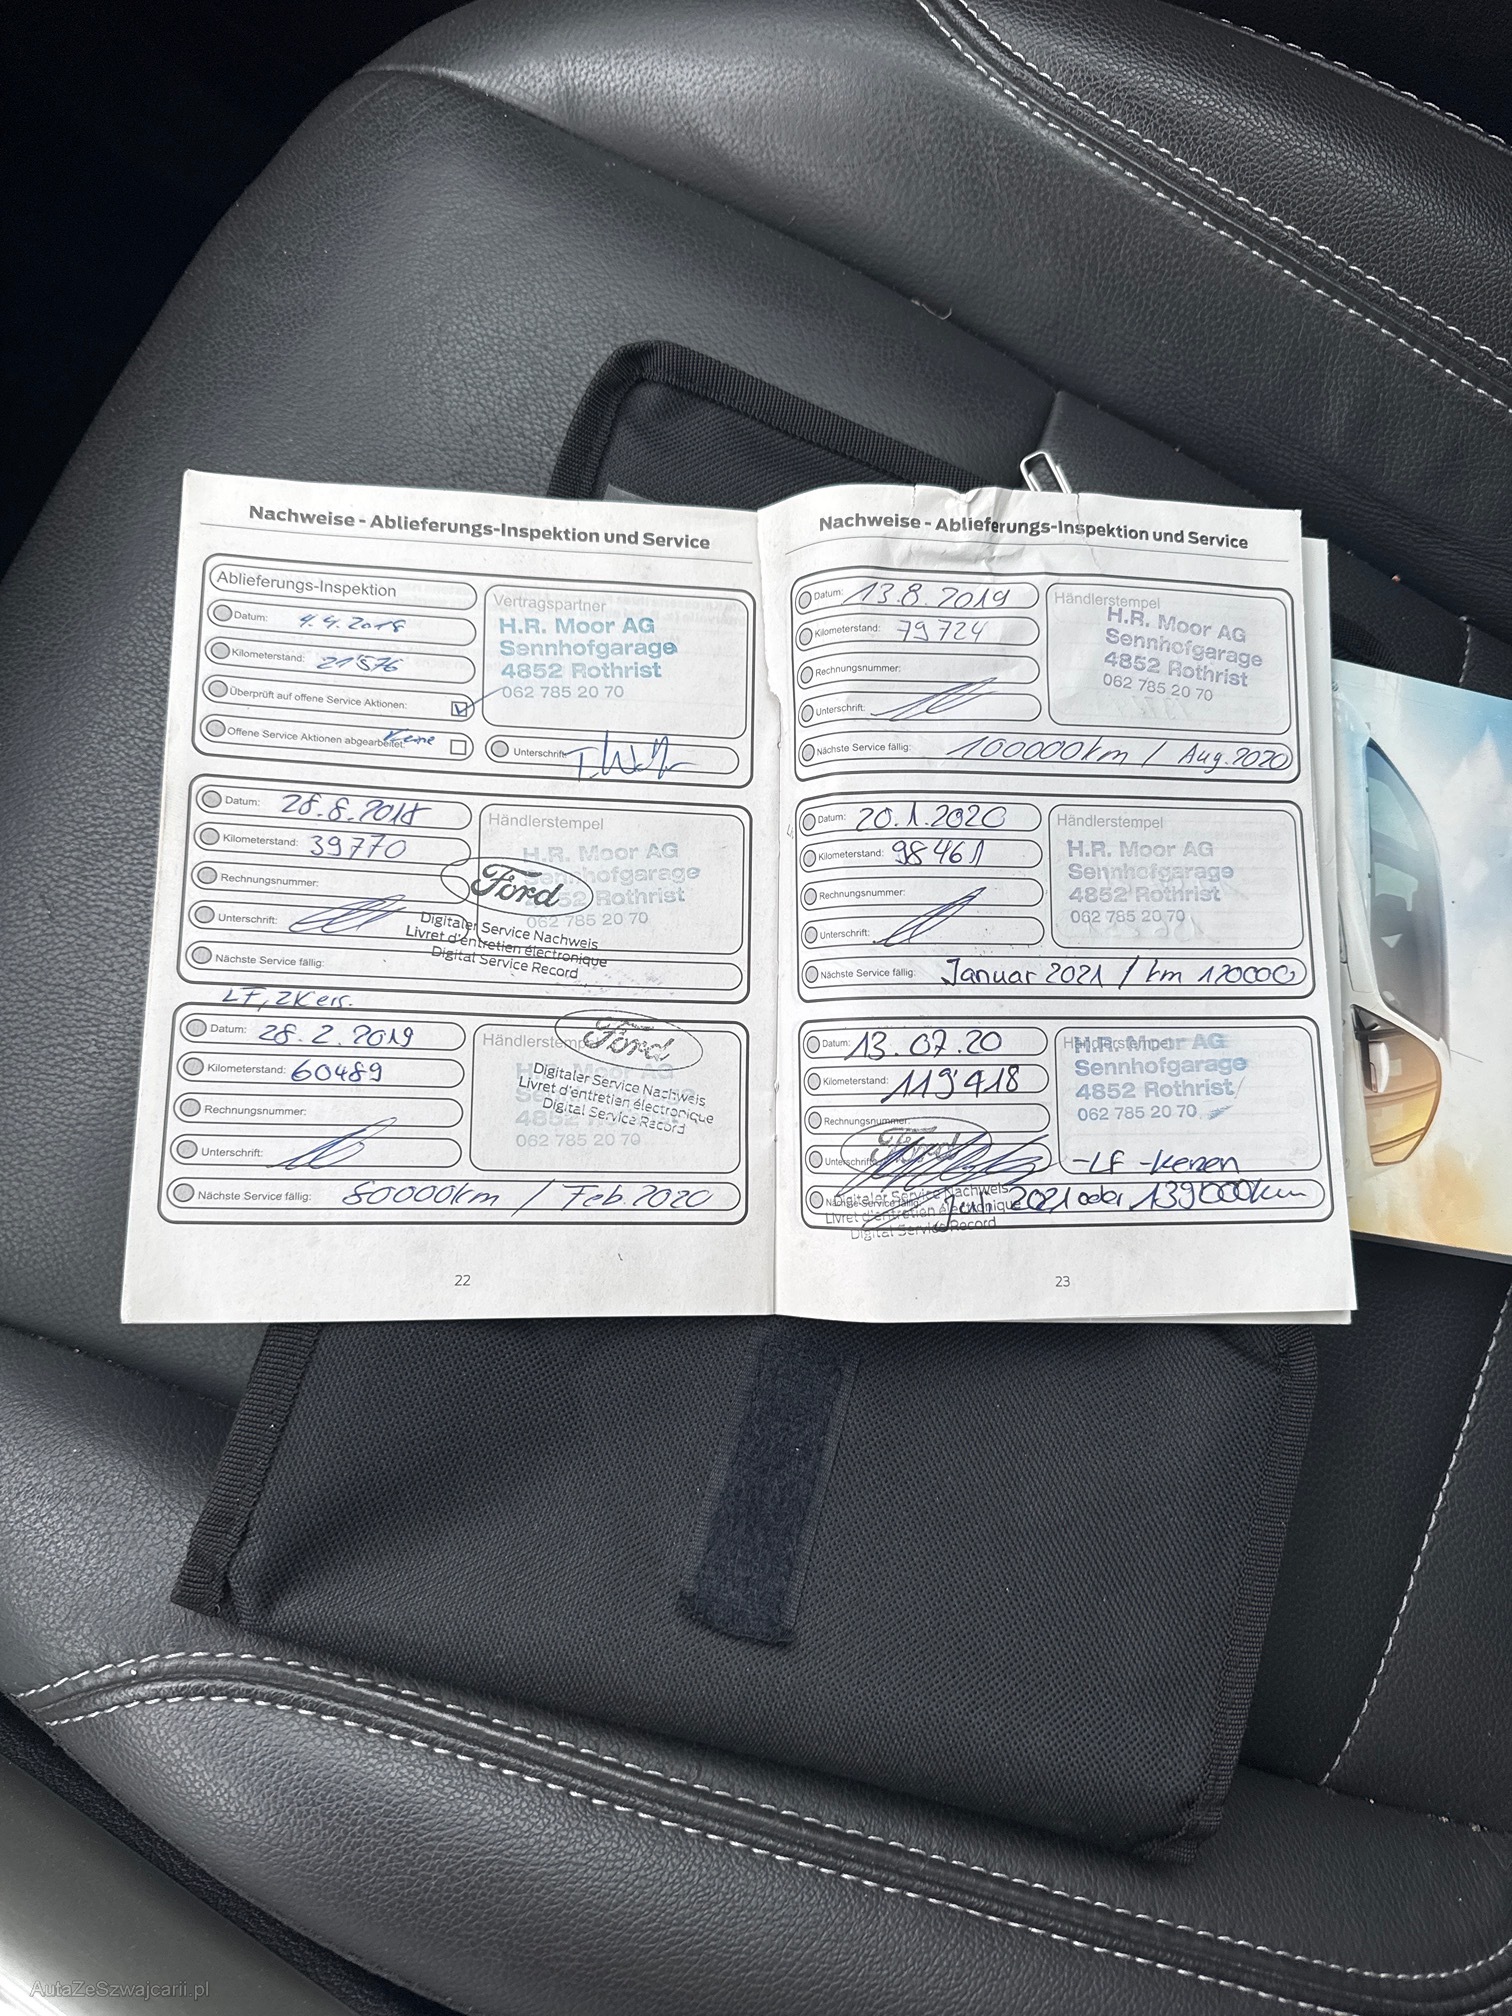 Nachweise - Ablieferungs-Inspektion und Service
Ablieferungs-Inspektion
Datum: 4.4.2018
Kilometerstand: 21'576
Überprüft auf offene Service Aktionen:
Offene Service Aktionen abgearbeitet: Keine
Vertragspartner
H.R. Moor AG
Sennhofgarage
4852 Rothrist
062 785 20 70
Unterschrift:
Datum: 28.8.2018
Kilometerstand: 39770
Rechnungsnummer:
Unterschrift:
Nächste Service fällig:
Händlerstempel
H.R. Moor AG
Sennhofgarage
4852 Rothrist
062 785 20 70
Ford
Digitaler Service Nachweis
Livret d'entretien électronique
Digital Service Record
LF, ZKers.
Datum: 28.2.2019
Kilometerstand: 60489
Rechnungsnummer:
Unterschrift:
Nächste Service fällig: 80000km / Feb.2020
Händlerstempel
Ford
Digitaler Service Nachweis
Livret d'entretien électronique
Digital Service Record
062 785 20 70
22
Nachweise - Ablieferungs-Inspektion und Service
Datum: 13.8.2019
Kilometerstand: 79724
Rechnungsnummer:
Unterschrift:
Nächste Service fällig: 100000km / Aug.2020
Händlerstempel
H.R. Moor AG
Sennhofgarage
4852 Rothrist
062 785 20 70
Datum: 20.1.2020
Kilometerstand: 98461
Rechnungsnummer:
Unterschrift:
Nächste Service fällig: Januar 2021 / km 120000
Händlerstempel
H.R. Moor AG
Sennhofgarage
4852 Rothrist
062 785 20 70
Datum: 13.07.20
Kilometerstand: 119'418
Rechnungsnummer:
Unterschrift:
Nächste Service fällig: Juli 2021 oder 139'000km
Händlerstempel
H.R. Moor AG
Sennhofgarage
4852 Rothrist
062 785 20 70
-LF -Kerzen
Ford
Digitaler Service Nachweis
Livret d'entretien électronique
Digital Service Record
23
AutaZeSzwajcarii.pl